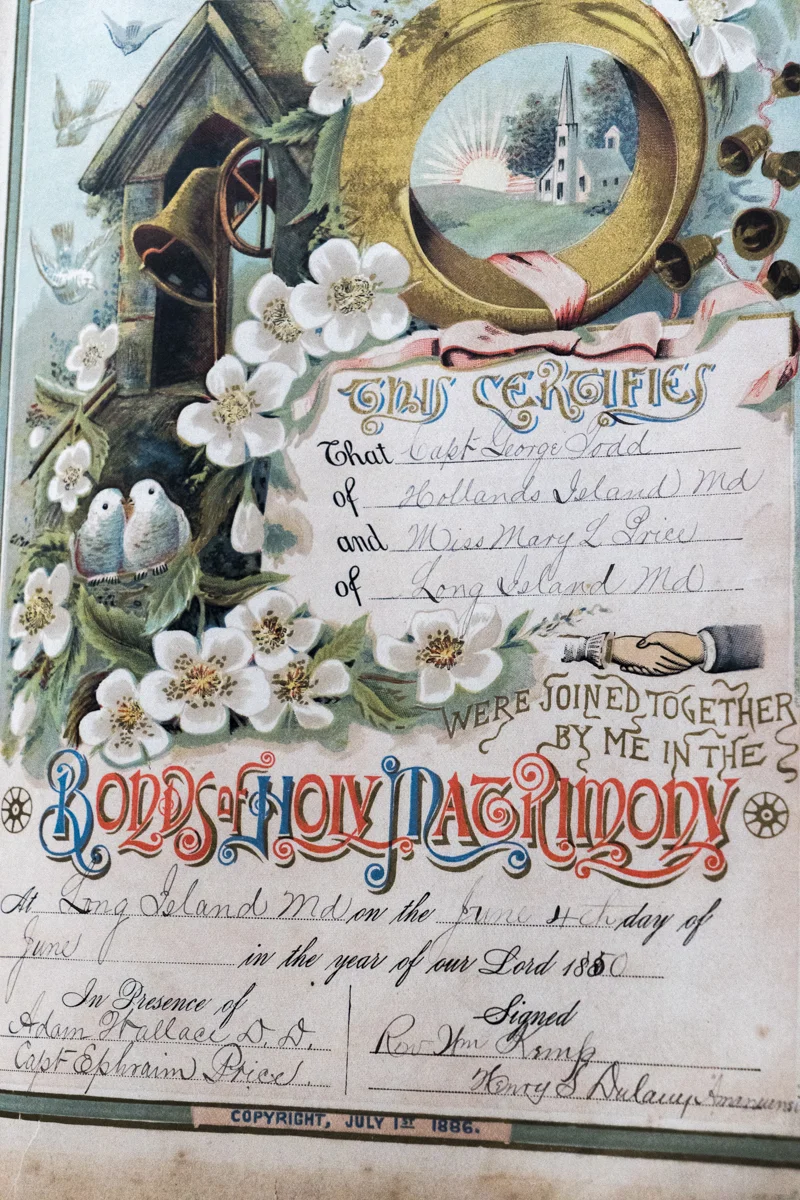 THIS CERTIFIES
That Capt George Todd
of Hollands Island Md
and Miss Mary L Price
of Long Island Md
WERE JOINED TOGETHER
BY ME IN THE
BONDS OF HOLY MATRIMONY
At Long Island Md on the June 4th day of
June in the year of our Lord 1850
In Presence of
Adam Wallace D. D.
Capt Ephraim Price
Signed
Rev Wm Kemp
Henry S Dulany
COPYRIGHT, JULY 1ST 1886.